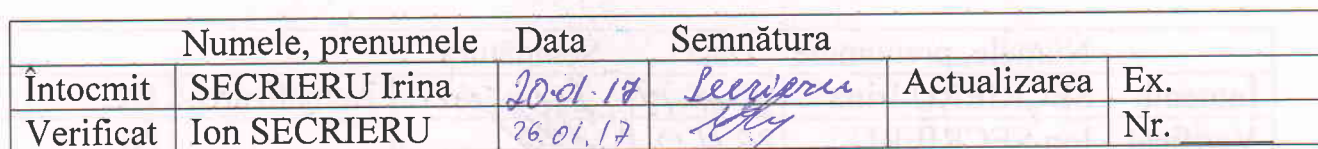 Numele, prenumele Data Semnătura
Întocmit SECRIERU Irina 20.01.17 Secrieru Actualizarea Ex.
Verificat Ion SECRIERU 26.01.17 Nr. ______